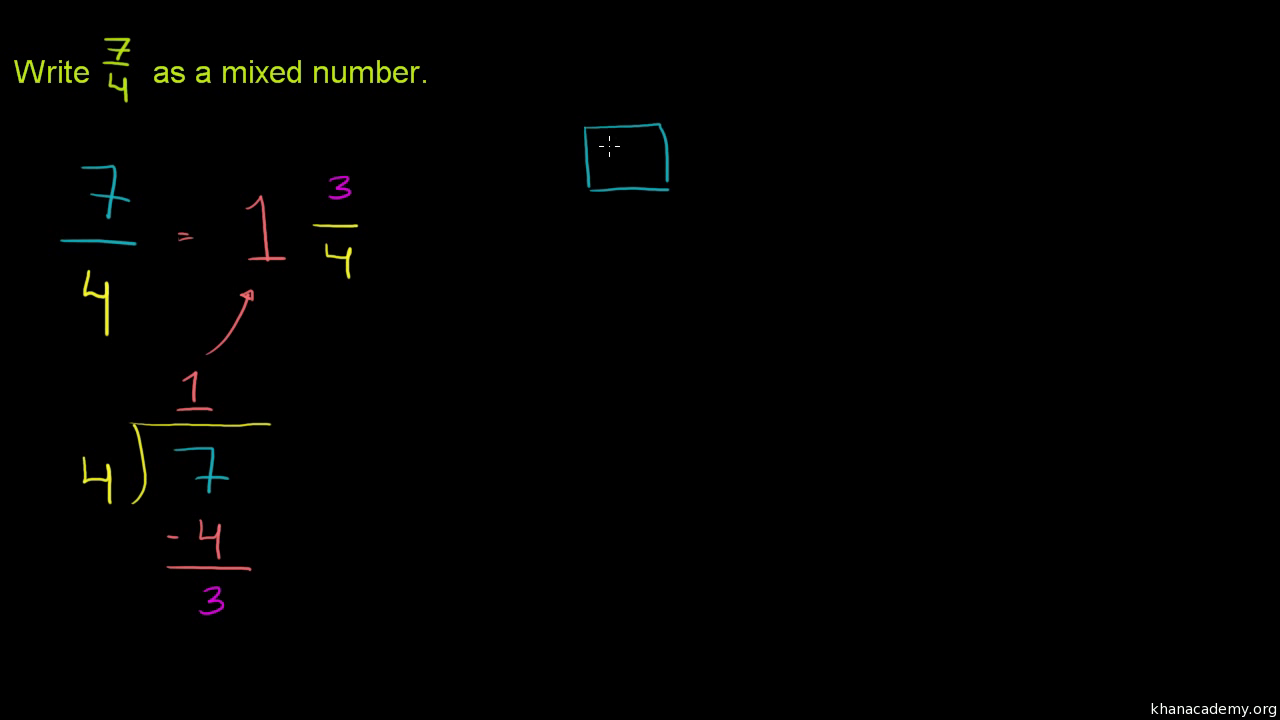 Write 7/4 as a mixed number.
7/4 = 1 3/4
1
4 ) 7
- 4
3
khanacademy.org